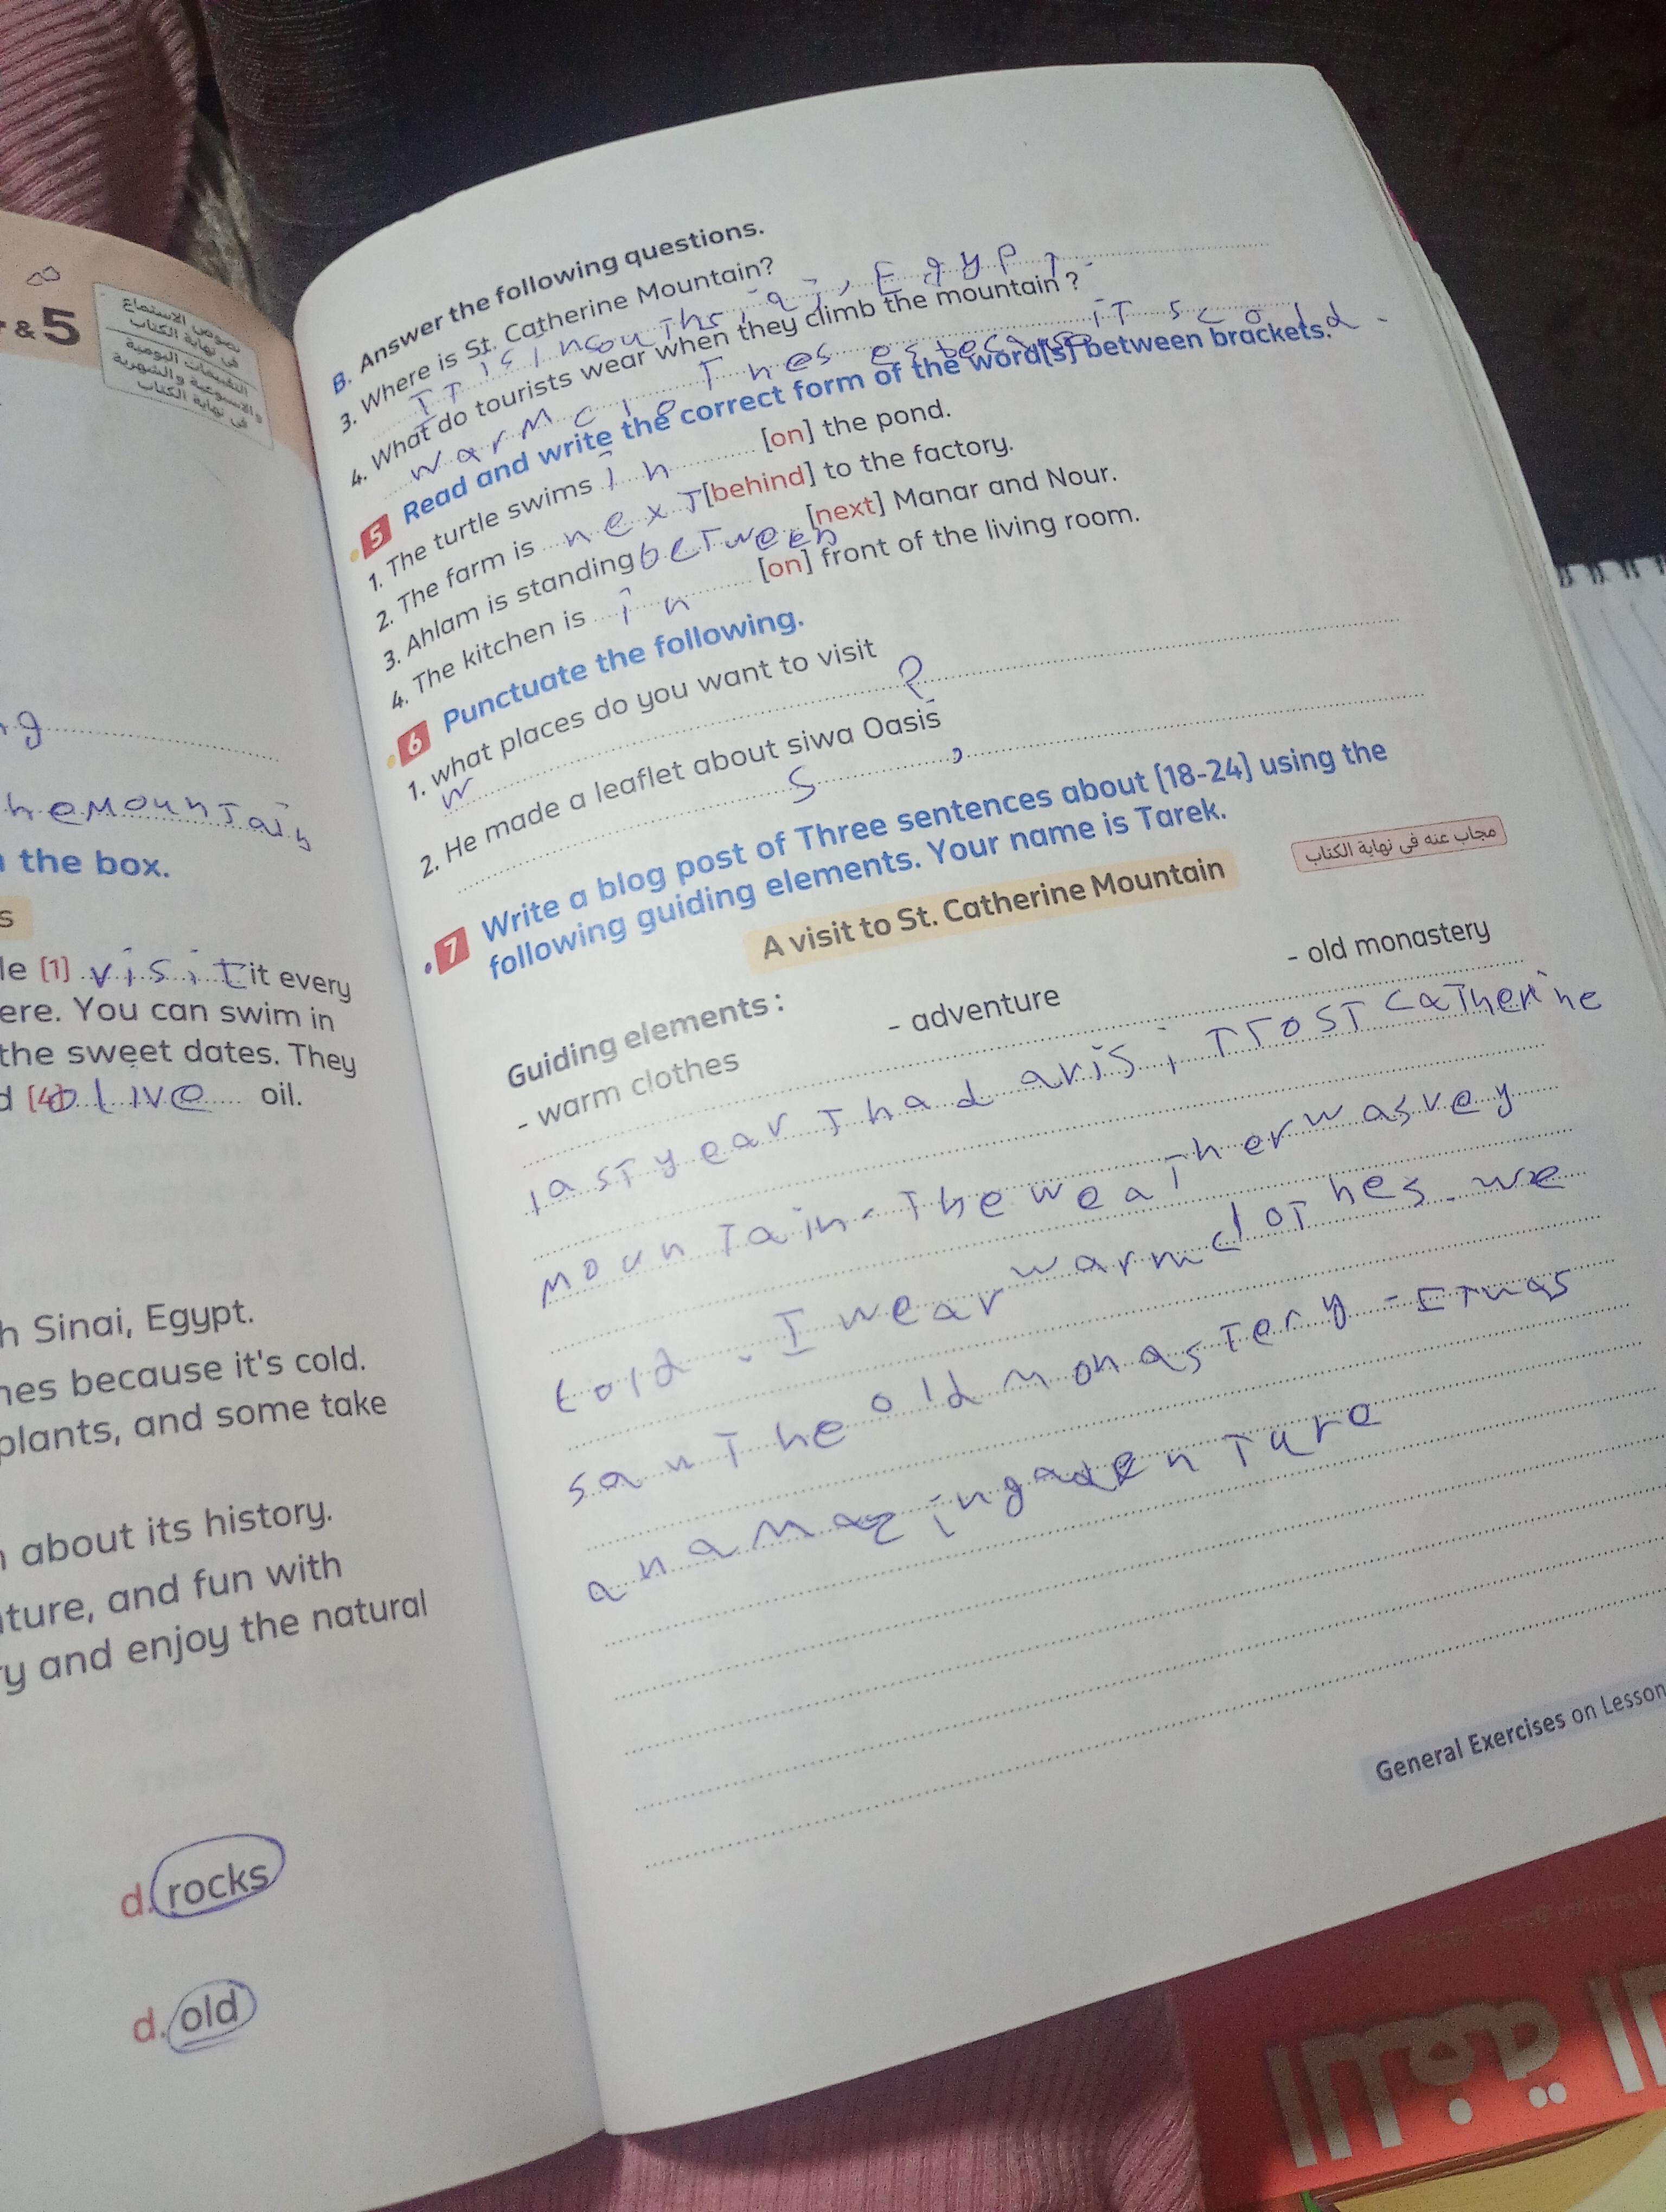 & 5
نصوص الاستماع
فى نهاية الكتاب
التقييمات اليومية
والأسبوعية والشهرية
فى نهاية الكتاب
g
hemounTain
the box.
s
le [1] visit it every
ere. You can swim in
the sweet dates. They
d [4] olive oil.
h Sinai, Egypt.
nes because it's cold.
plants, and some take
about its history.
nture, and fun with
ry and enjoy the natural
d. rocks
d. old
B. Answer the following questions.
3. Where is St. Catherine Mountain?
IT is in souTh, Egypt.
4. What do tourists wear when they climb the mountain?
warm cloThes because iT s cold.
5 Read and write the correct form of the word[s] between brackets.
1. The turtle swims in [on] the pond.
2. The farm is nexT [behind] to the factory.
3. Ahlam is standing beTween [next] Manar and Nour.
4. The kitchen is in [on] front of the living room.
6 Punctuate the following.
1. what places do you want to visit
W ?
2. He made a leaflet about siwa Oasis
S .
7 Write a blog post of Three sentences about [18-24] using the
following guiding elements. Your name is Tarek.
مجاب عنه فى نهاية الكتاب
A visit to St. Catherine Mountain
Guiding elements :
- warm clothes - adventure - old monastery
lasT year I had avisiT To ST caTherine
mounTain. The weaTher was vey
cold. I wear warm cloThes. we
saw The old monasTery. ITwas
an amazing advenTure
General Exercises on Lesson